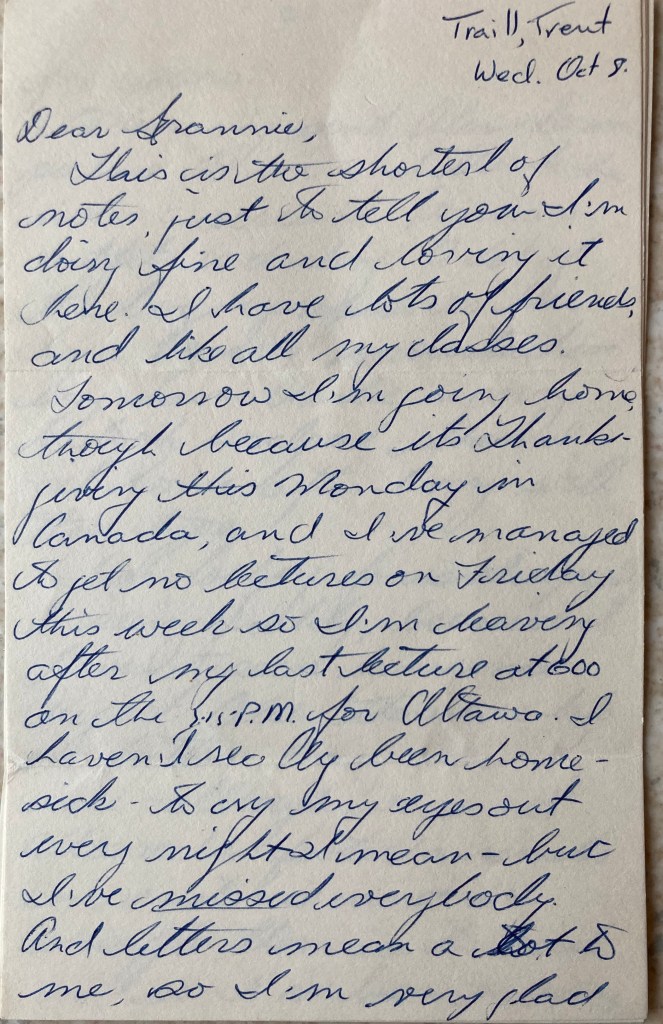 Traill, Trent
Wed. Oct 8.
Dear Grannie,
This is the shortest of
notes, just to tell you I'm
doing fine and loving it
here. I have lots of friends,
and like all my classes.
Tomorrow I'm going home,
though because its Thanks-
giving this Monday in
Canada, and I've managed
to get no lectures on Friday
this week so I'm leaving
after my last lecture at 600
on the P.M. for Ottawa. I
haven't really been home-
sick - to cry my eyes out
every night I mean - but
I've missed everybody.
And letters mean a lot to
me, so I'm very glad